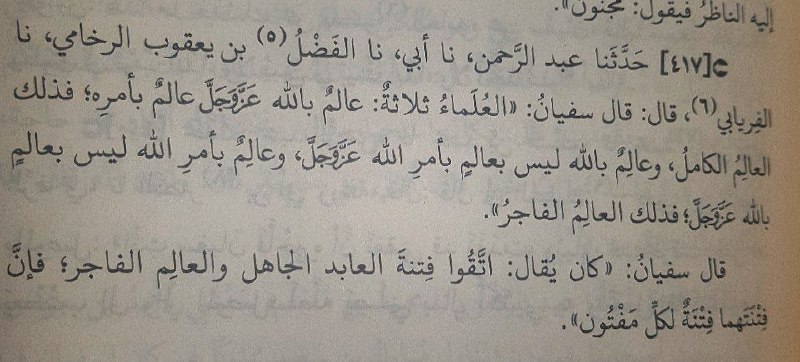 إليه الناظرُ فيقول: مجنون».
[٤١٧] حَدَّثَنا عبد الرَّحمن، نا أبي، نا الفَضْلُ(٥) بن يعقوب الرخامي، نا
الفِريابي(٦)، قال: قال سفيانُ: «العُلَماءُ ثلاثةٌ: عالمٌ بالله عَزَّوَجَلَّ عالمٌ بأمرِه؛ فذلك
العالِمُ الكاملُ، وعالِمٌ بالله ليس بعالمٍ بأمرِ الله عَزَّوَجَلَّ، وعالِمٌ بأمرِ الله ليس بعالمٍ
بالله عَزَّوَجَلَّ؛ فذلك العالِمُ الفاجرُ».
قال سفيانُ: «كان يُقال: اتَّقُوا فِتنةَ العابد الجاهل والعالِم الفاجر؛ فإنَّ
فِتْنَتَهما فِتْنَةٌ لكلِّ مَفْتُون».